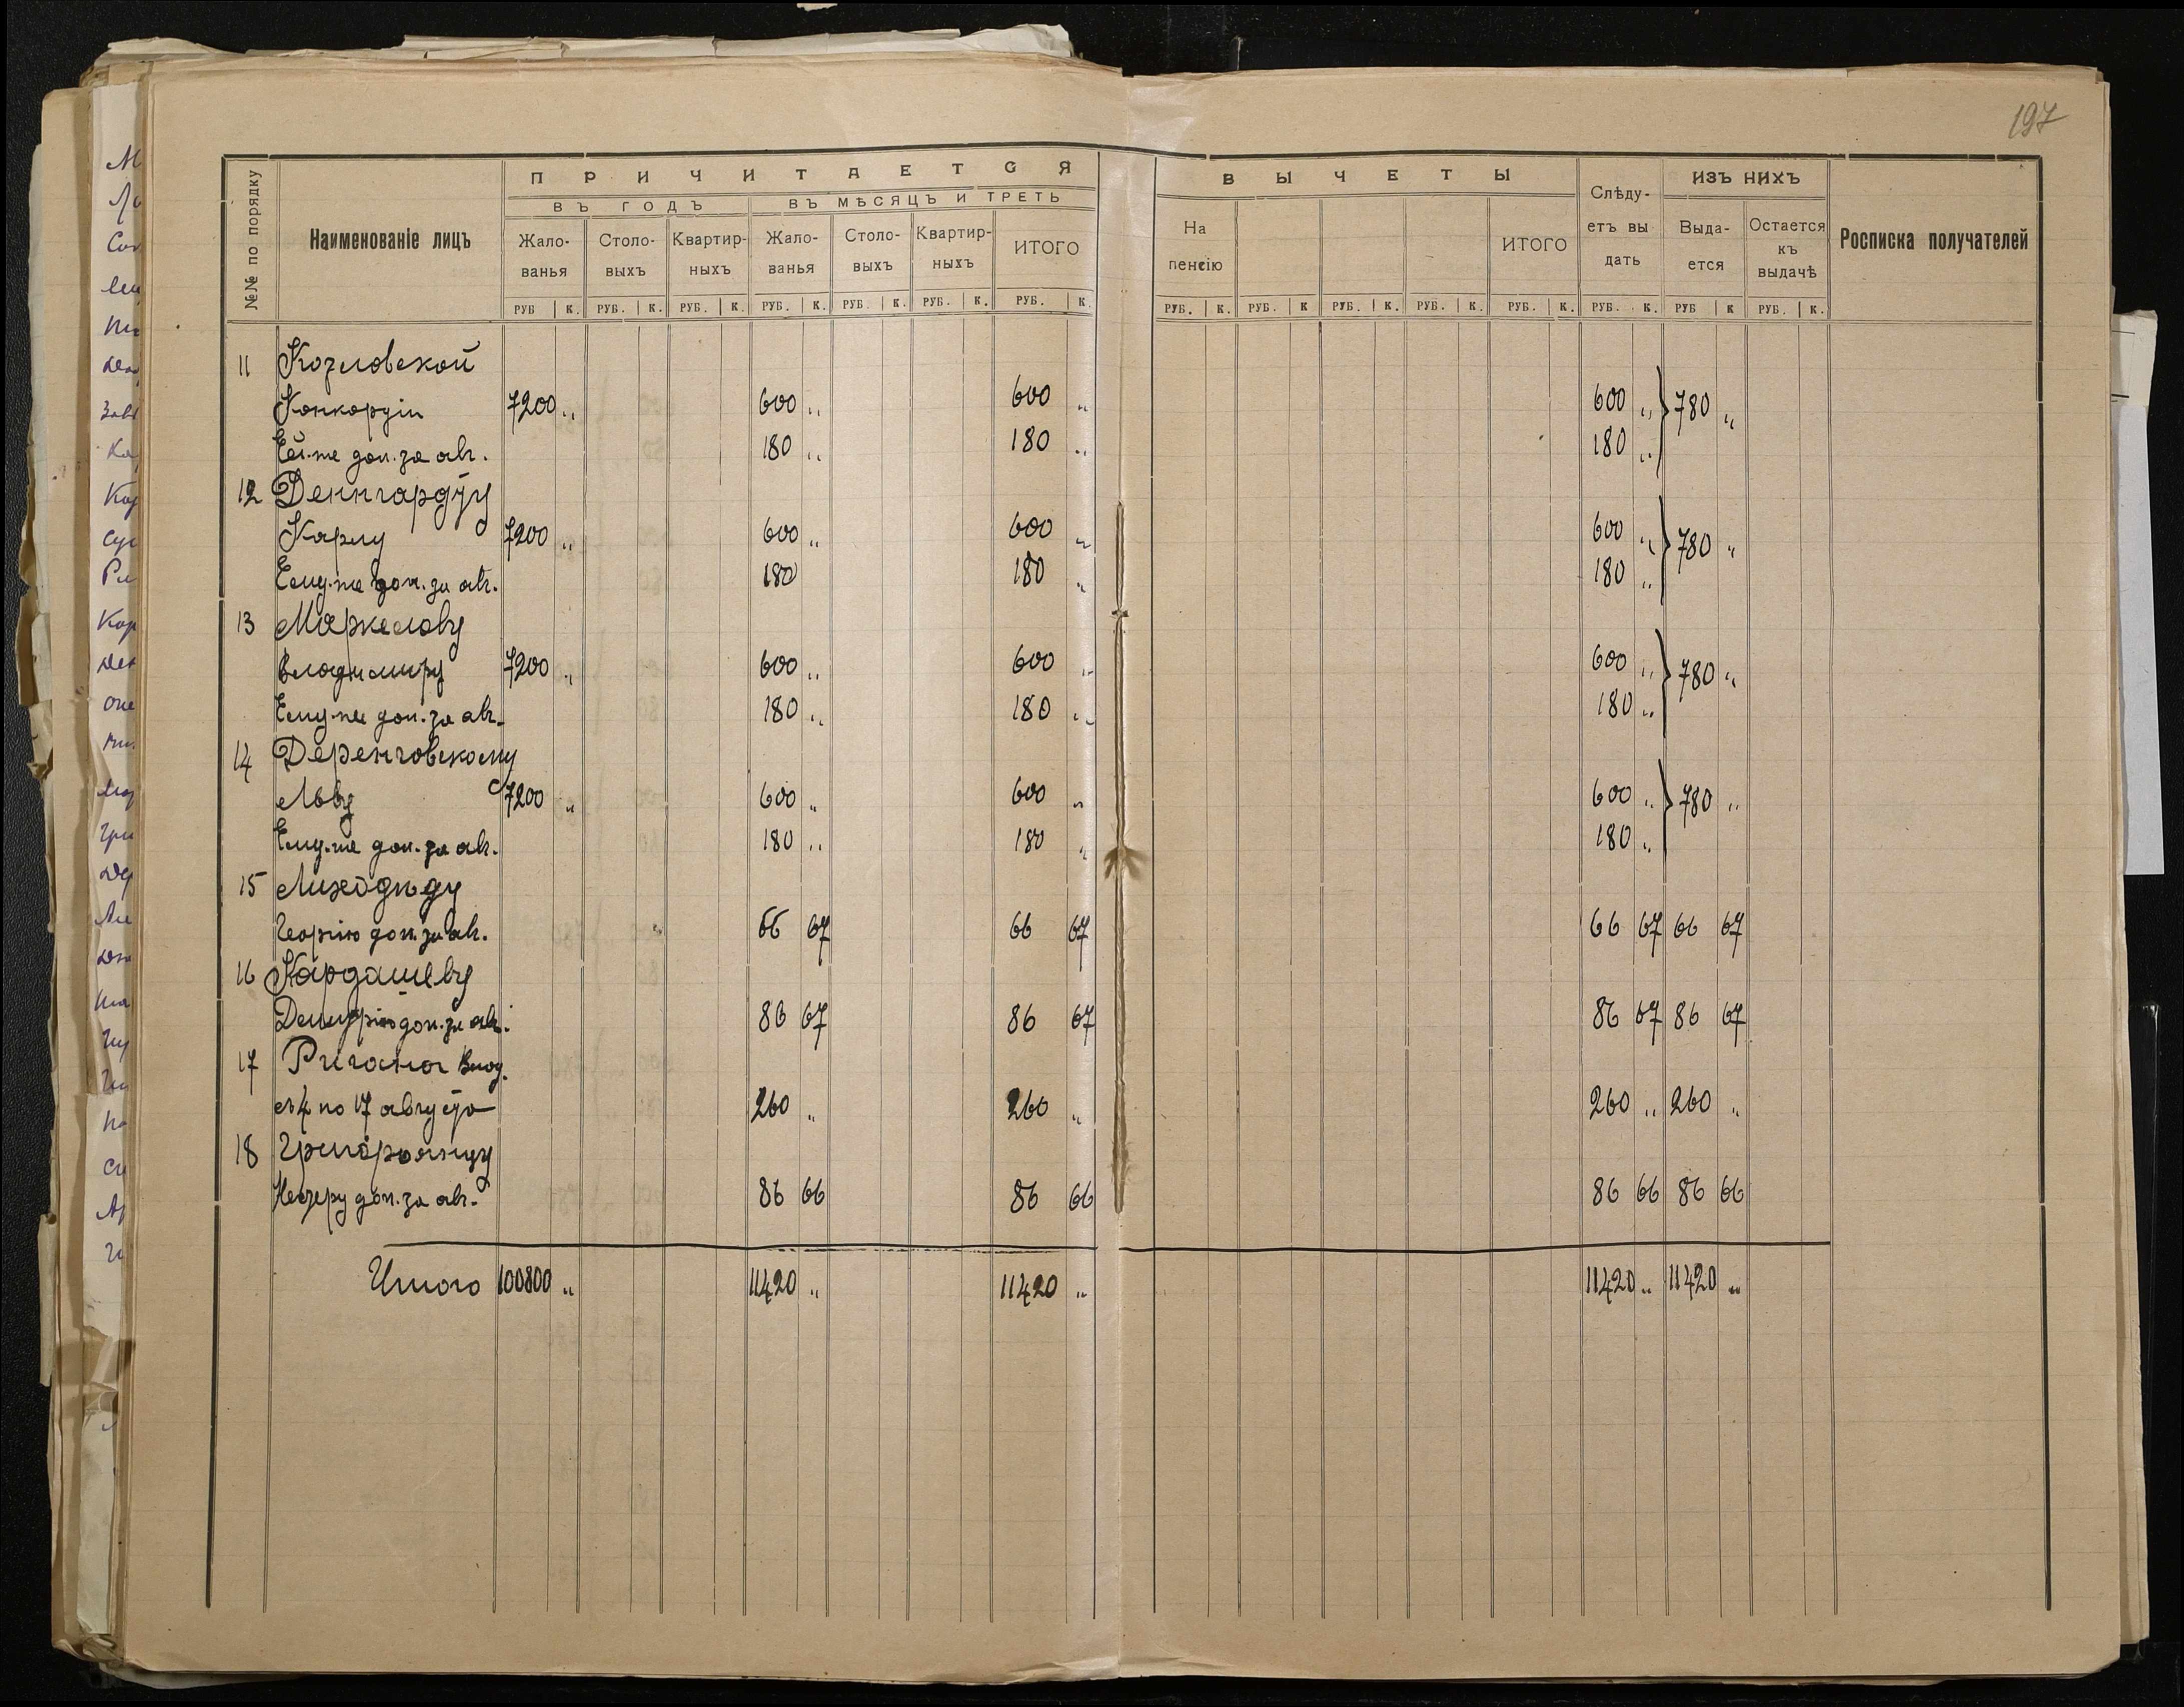 197
№№ по порядку
Наименованіе лицъ
ПРИЧИТАЕТСЯ
ВЪ ГОДЪ
ВЪ МѢСЯЦЪ И ТРЕТЬ
Жало-ванья Столо-выхъ Квартир-ныхъ Жало-ванья Столо-выхъ Квартир-ныхъ ИТОГО
РУБ К. РУБ. К. РУБ. К. РУБ. К. РУБ. К. РУБ. К. РУБ. К.
ВЫЧЕТЫ
На пенсію
ИТОГО
Слѣду-етъ вы дать
ИЗЪ НИХЪ
Выда-ется
Остается къ выдачѣ
Росписка получателей
РУБ. К. РУБ. К РУБ. К. РУБ. К. РУБ. К. РУБ. К. РУБ К РУБ. К.
11 Козловской
Конкордіи 7200 „ 600 „ 600 „ 600 „ 780 „
Ей-же доп. за авг. 180 „ 180 „ 180 „
12 Денигардту
Карлу 7200 „ 600 „ 600 „ 600 „ 780 „
Ему-же доп. за авг. 180 180 „ 180 „
13 Маркелову
Владимиру 7200 „ 600 „ 600 „ 600 „ 780 „
Ему-же доп. за авг. 180 „ 180 „ 180 „
14 Деренговскому
Льву 7200 „ 600 „ 600 „ 600 „ 780 „
Ему-же доп. за авг. 180 „ 180 „ 180 „
15
Георгію доп. за авг. 66 67 66 67 66 67 66 67
16 Кардашеву
Димитрію доп. за авг. 86 67 86 67 86 67 86 67
17 Ригана Влад.
съ 4 по 17 августа 260 „ 260 „ 260 „ 260 „
18 Григорьянцу
доп. за авг. 86 66 86 66 86 66 86 66
Итого 100800 „ 11420 „ 11420 „ 11420 „ 11420 „